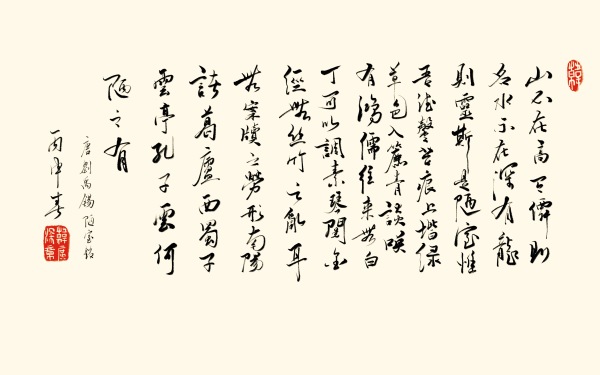 山不在高有僊則
名水不在深有龍
則靈斯是陋室惟
吾德馨苔痕上堦緑
草色入簾青談咲
有鴻儒往來無白
丁可以調素琴閱金
經無丝竹之亂耳
無案牘之勞形南陽
諸葛廬西蜀子
雲亭孔子雲何
陋之有
唐劉禹錫陋室銘
丙申春